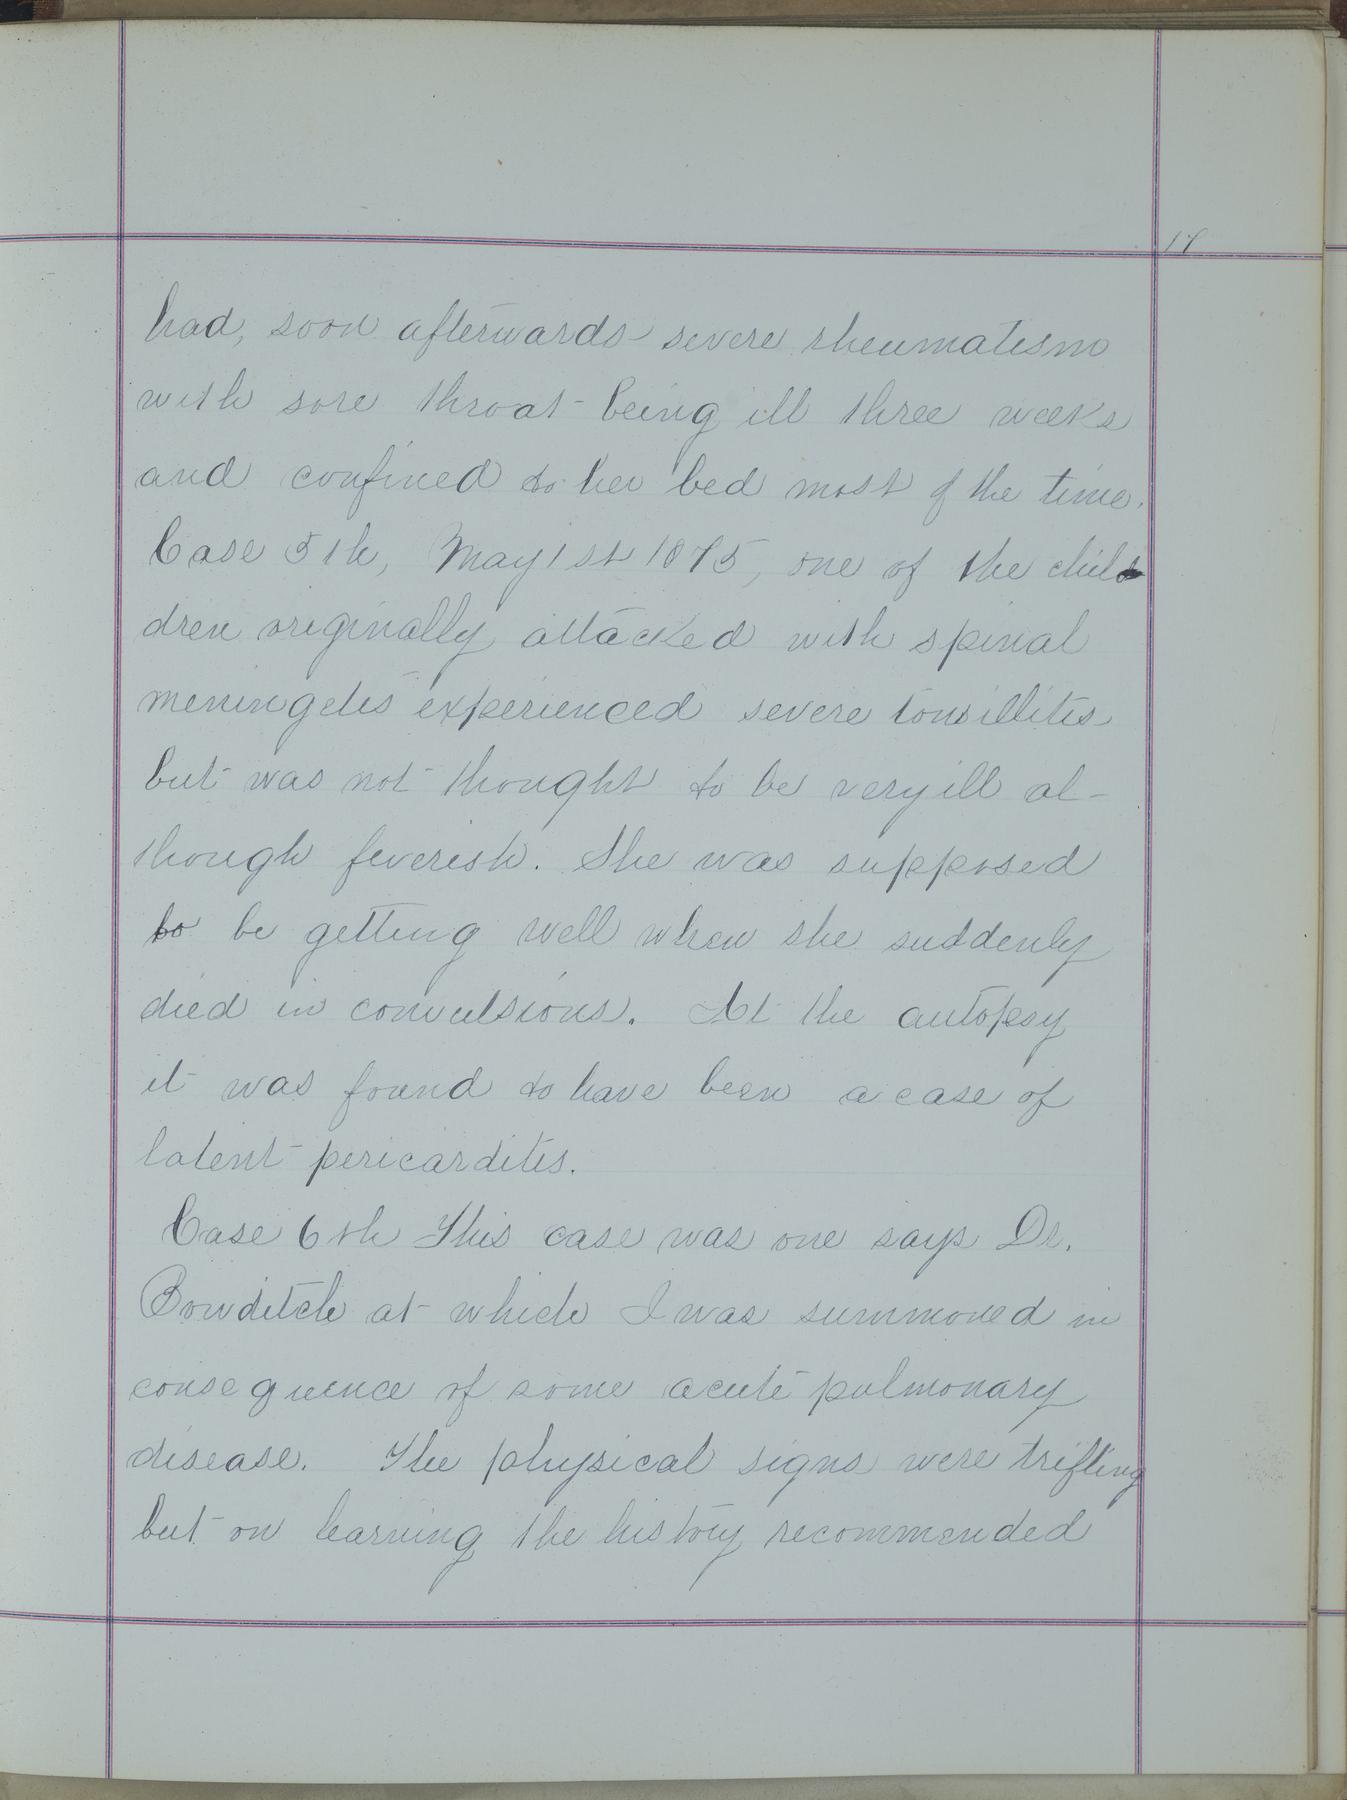 17
had, soon afterwards severe rheumatism
with sore throat being ill three weeks
and confined to her bed most of the time.
Case 5th, May 1st 1875, one of the chil
dren originally attacked with spinal
meningetis experienced severe tonsillitis
but was not thought to be very ill al-
though feverish. She was supposed
to be getting well when she suddenly
died in convulsions. At the autopsy
it was found to have been a case of
latent pericarditis.
Case 6th This case was one says Dr.
Bowditch at which I was summoned in
consequence of some acute pulmonary
disease. The physical signs were trifling
but on learning the history recommended